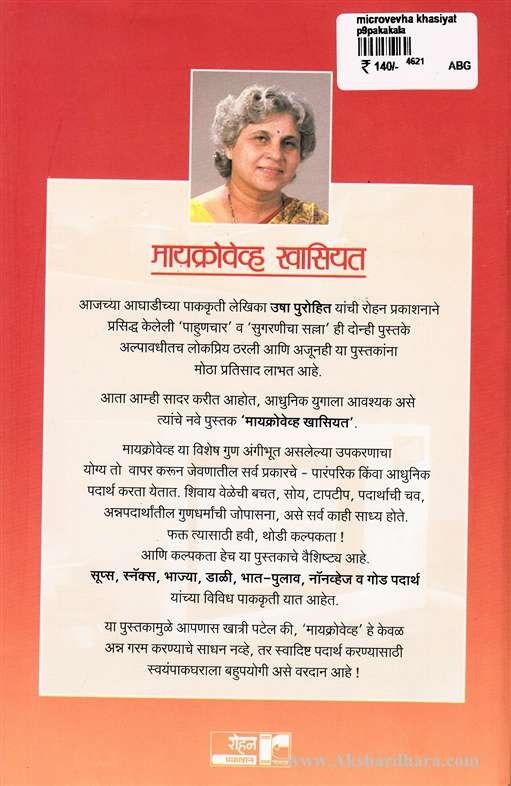 microvevha khasiyat
p9pakakala
₹ 140/- 4621 ABG
मायक्रोवेव्ह खासियत
आजच्या आघाडीच्या पाककृती लेखिका उषा पुरोहित यांची रोहन प्रकाशनाने
प्रसिद्ध केलेली 'पाहुणचार' व 'सुगरणीचा सल्ला' ही दोन्ही पुस्तके
अल्पावधीतच लोकप्रिय ठरली आणि अजूनही या पुस्तकांना
मोठा प्रतिसाद लाभत आहे.
आता आम्ही सादर करीत आहोत, आधुनिक युगाला आवश्यक असे
त्यांचे नवे पुस्तक 'मायक्रोवेव्ह खासियत'.
मायक्रोवेव्ह या विशेष गुण अंगीभूत असलेल्या उपकरणाचा
योग्य तो वापर करून जेवणातील सर्व प्रकारचे - पारंपरिक किंवा आधुनिक
पदार्थ करता येतात. शिवाय वेळेची बचत, सोय, टापटीप, पदार्थाची चव,
अन्नपदार्थांतील गुणधर्मांची जोपासना, असे सर्व काही साध्य होते.
फक्त त्यासाठी हवी, थोडी कल्पकता !
आणि कल्पकता हेच या पुस्तकाचे वैशिष्ट्य आहे.
सूप्स, स्नॅक्स, भाज्या, डाळी, भात-पुलाव, नॉनव्हेज व गोड पदार्थ
यांच्या विविध पाककृती यात आहेत.
या पुस्तकामुळे आपणास खात्री पटेल की, 'मायक्रोवेव्ह' हे केवळ
अन्न गरम करण्याचे साधन नव्हे, तर स्वादिष्ट पदार्थ करण्यासाठी
स्वयंपाकघराला बहुपयोगी असे वरदान आहे !
रोहन
प्रकाशन
www.Akshardhara.com